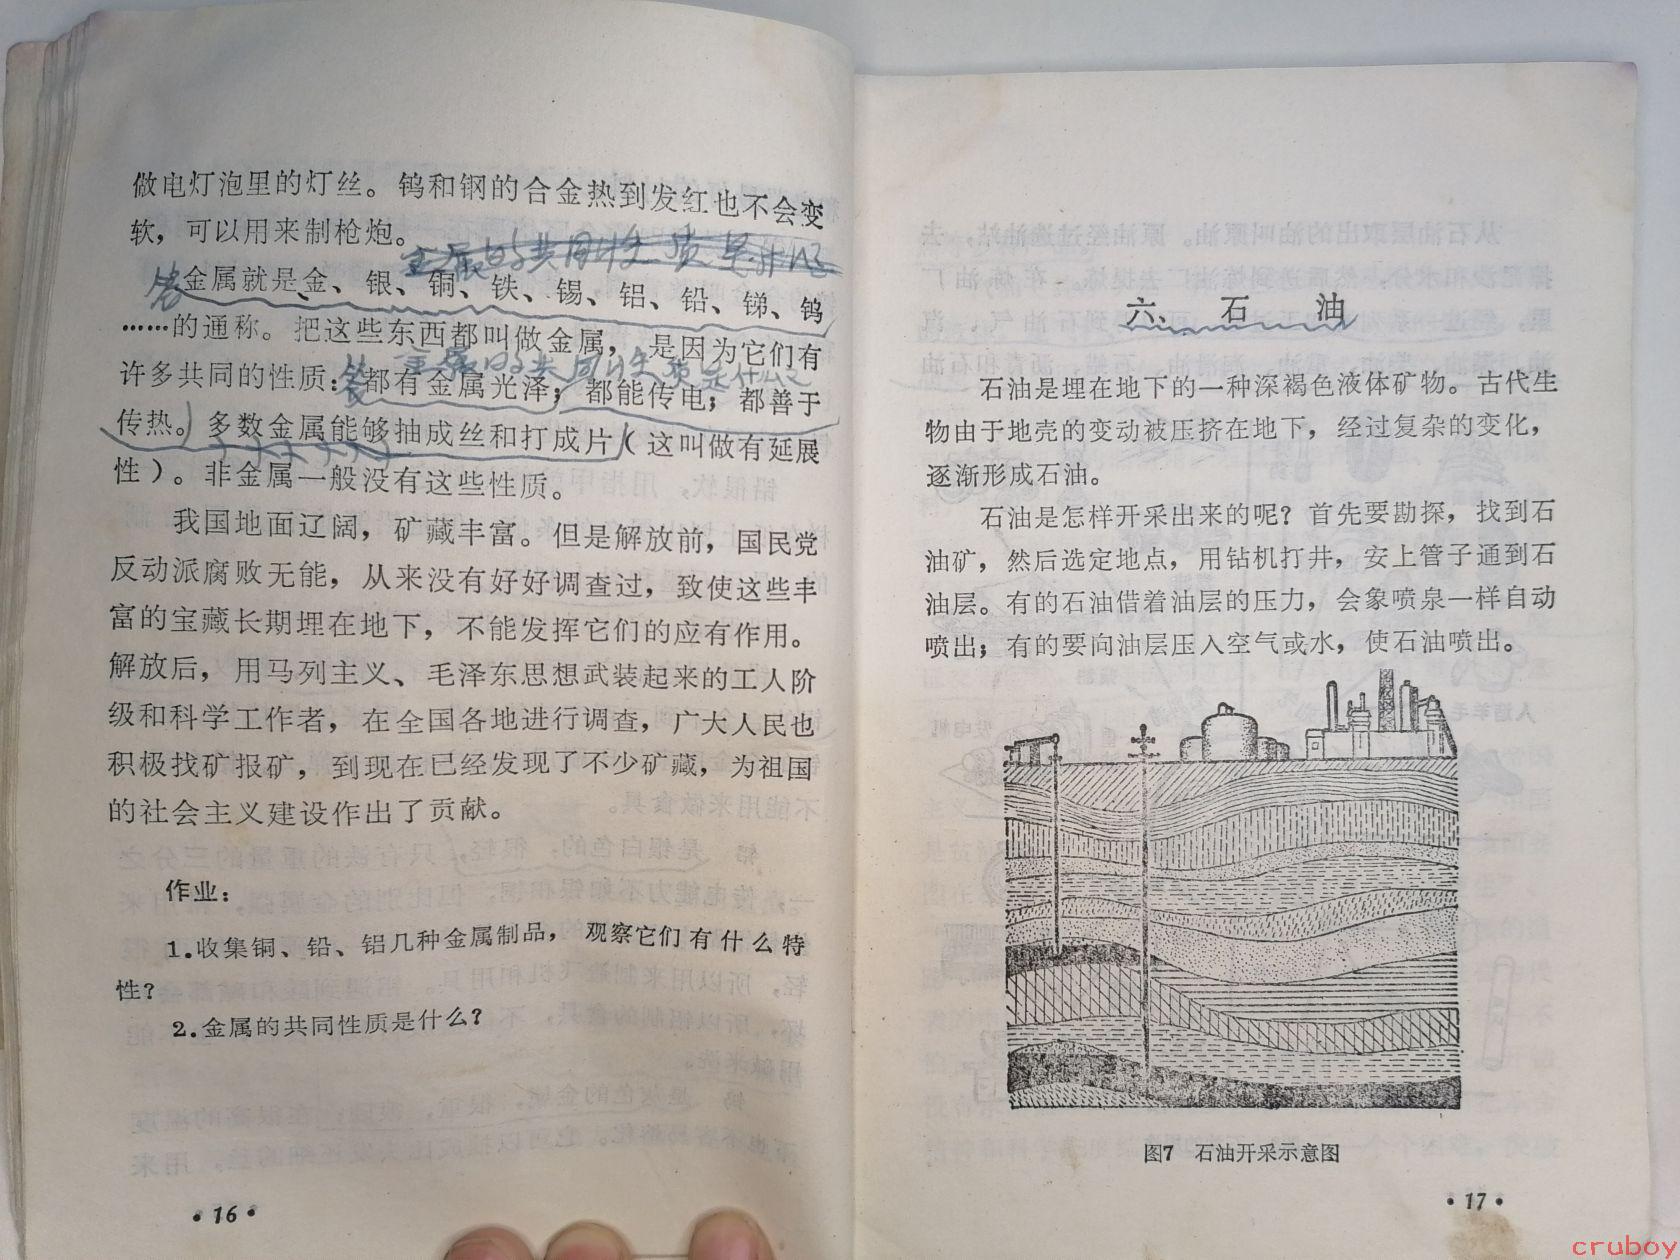 做电灯泡里的灯丝。钨和钢的合金热到发红也不会变
软，可以用来制枪炮。
金属的共同性质是什么
答
金属就是金、银、铜、铁、锡、铝、铅、锑、钨
……的通称。把这些东西都叫做金属，是因为它们有
金属的共同性质是什么
许多共同的性质：答都有金属光泽；都能传电；都善于
传热。多数金属能够抽成丝和打成片（这叫做有延展
性）。非金属一般没有这些性质。
我国地面辽阔，矿藏丰富。但是解放前，国民党
反动派腐败无能，从来没有好好调查过，致使这些丰
富的宝藏长期埋在地下，不能发挥它们的应有作用。
解放后，用马列主义、毛泽东思想武装起来的工人阶
级和科学工作者，在全国各地进行调查，广大人民也
积极找矿报矿，到现在已经发现了不少矿藏，为祖国
的社会主义建设作出了贡献。
作业：
1.收集铜、铅、铝几种金属制品，观察它们有什么特
性？
2.金属的共同性质是什么？
·16·
六、石油
石油是埋在地下的一种深褐色液体矿物。古代生
物由于地壳的变动被压挤在地下，经过复杂的变化，
逐渐形成石油。
石油是怎样开采出来的呢？首先要勘探，找到石
油矿，然后选定地点，用钻机打井，安上管子通到石
油层。有的石油借着油层的压力，会象喷泉一样自动
喷出；有的要向油层压入空气或水，使石油喷出。
图7 石油开采示意图
·17·
cruboy